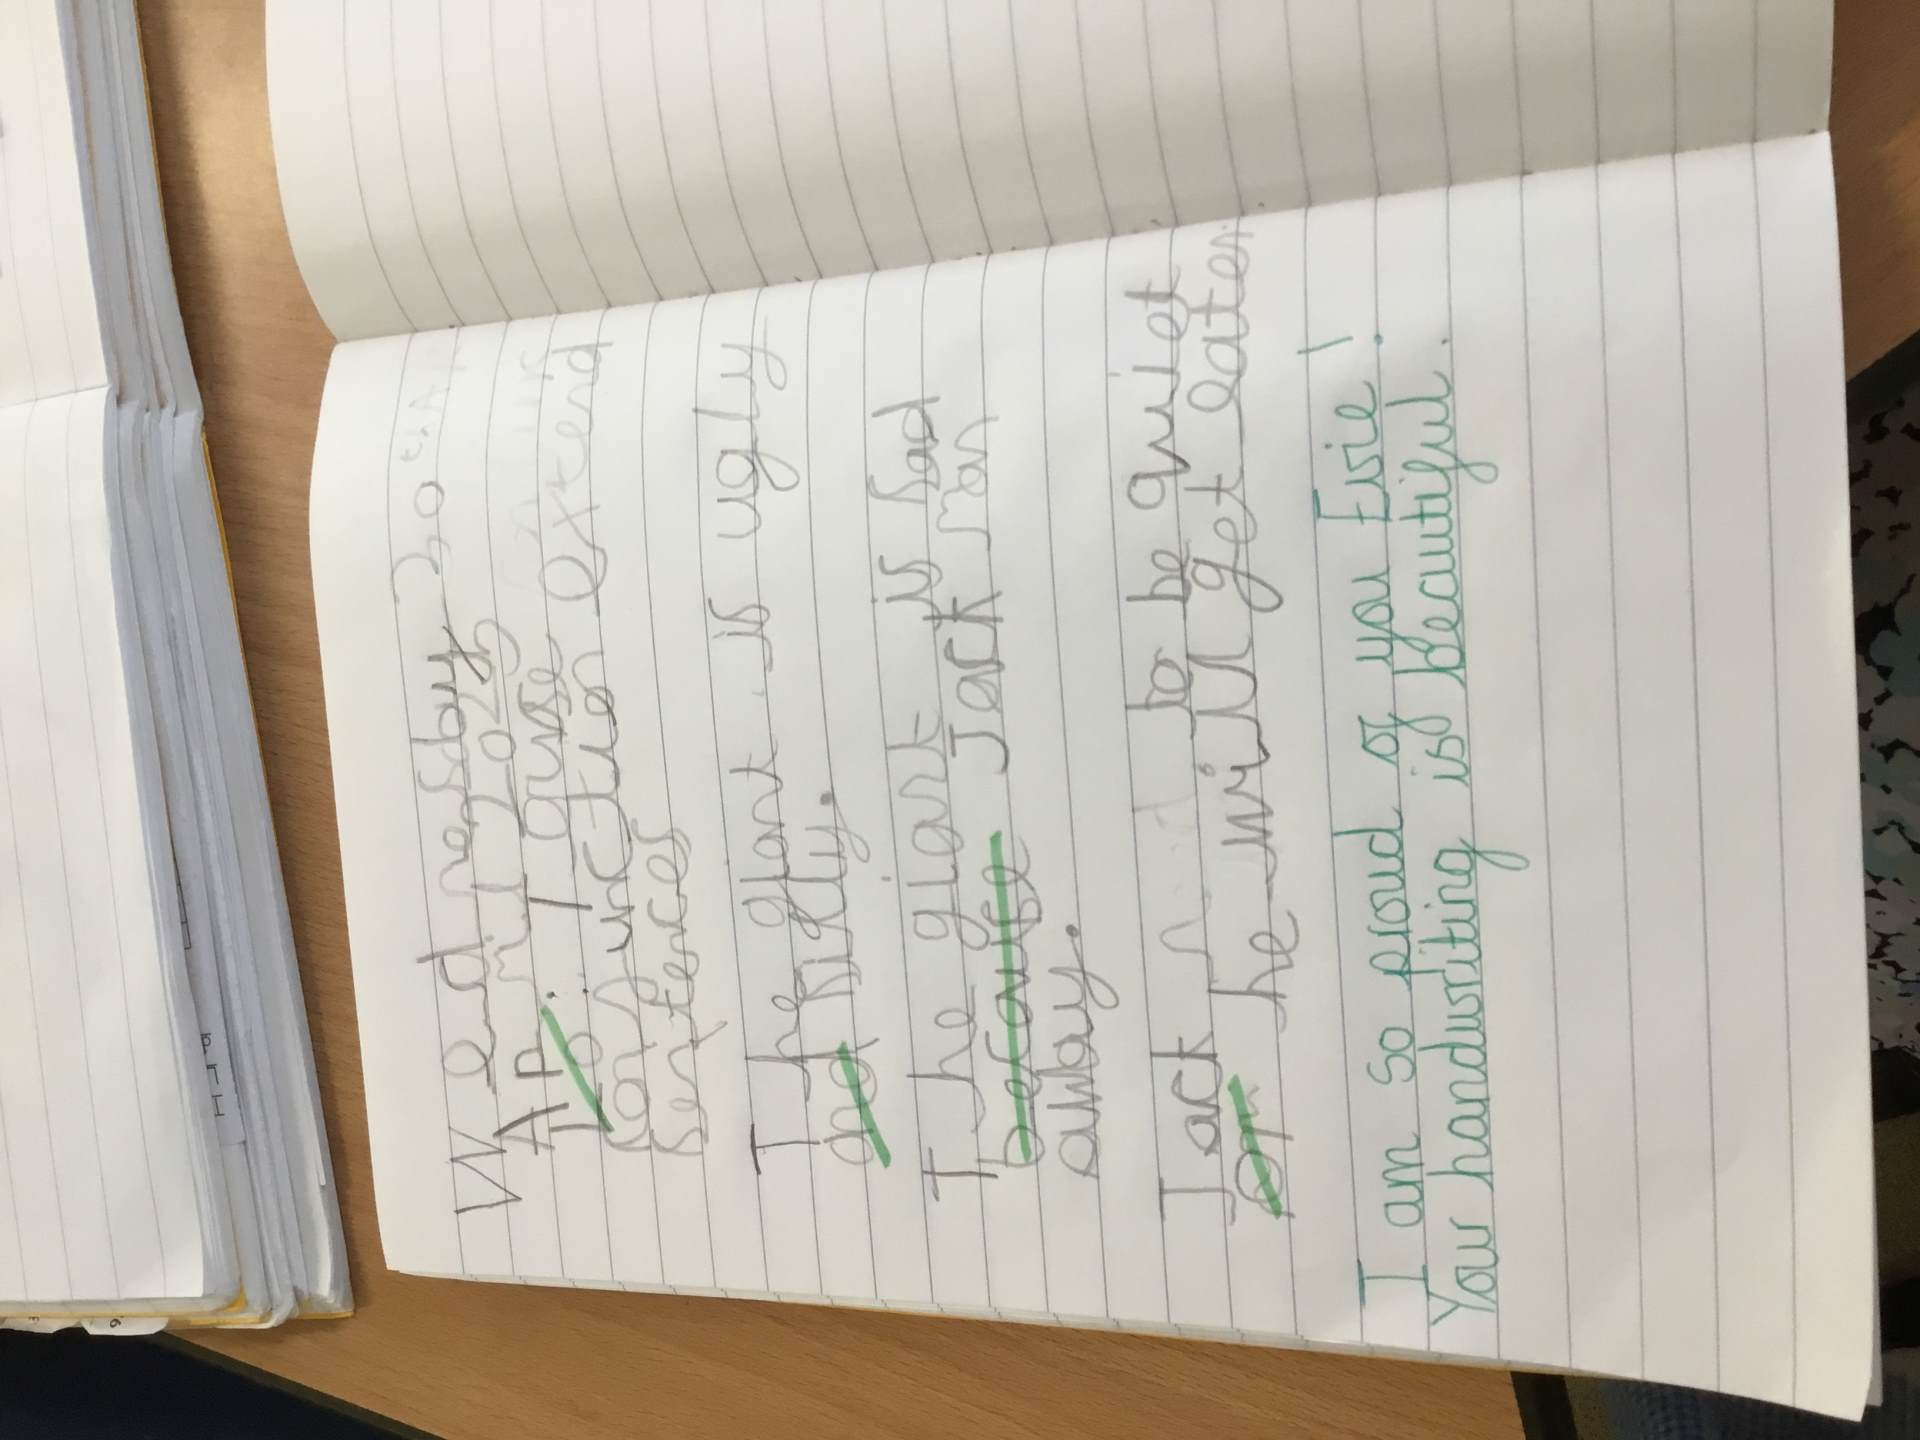 Wednesday 30th
April 2025
To: I can use
conjunction extend
sentences
The giant is ugly
and sickly.
The giant is sad
because Jack ran
away.
Jack to be quiet
or he will get eaten.
I am so proud of you Evie!
Your handwriting is beautiful.